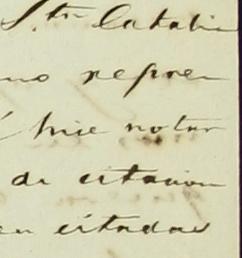 S.ta Catalin
no repre
hice notar
de citacion
en citadas